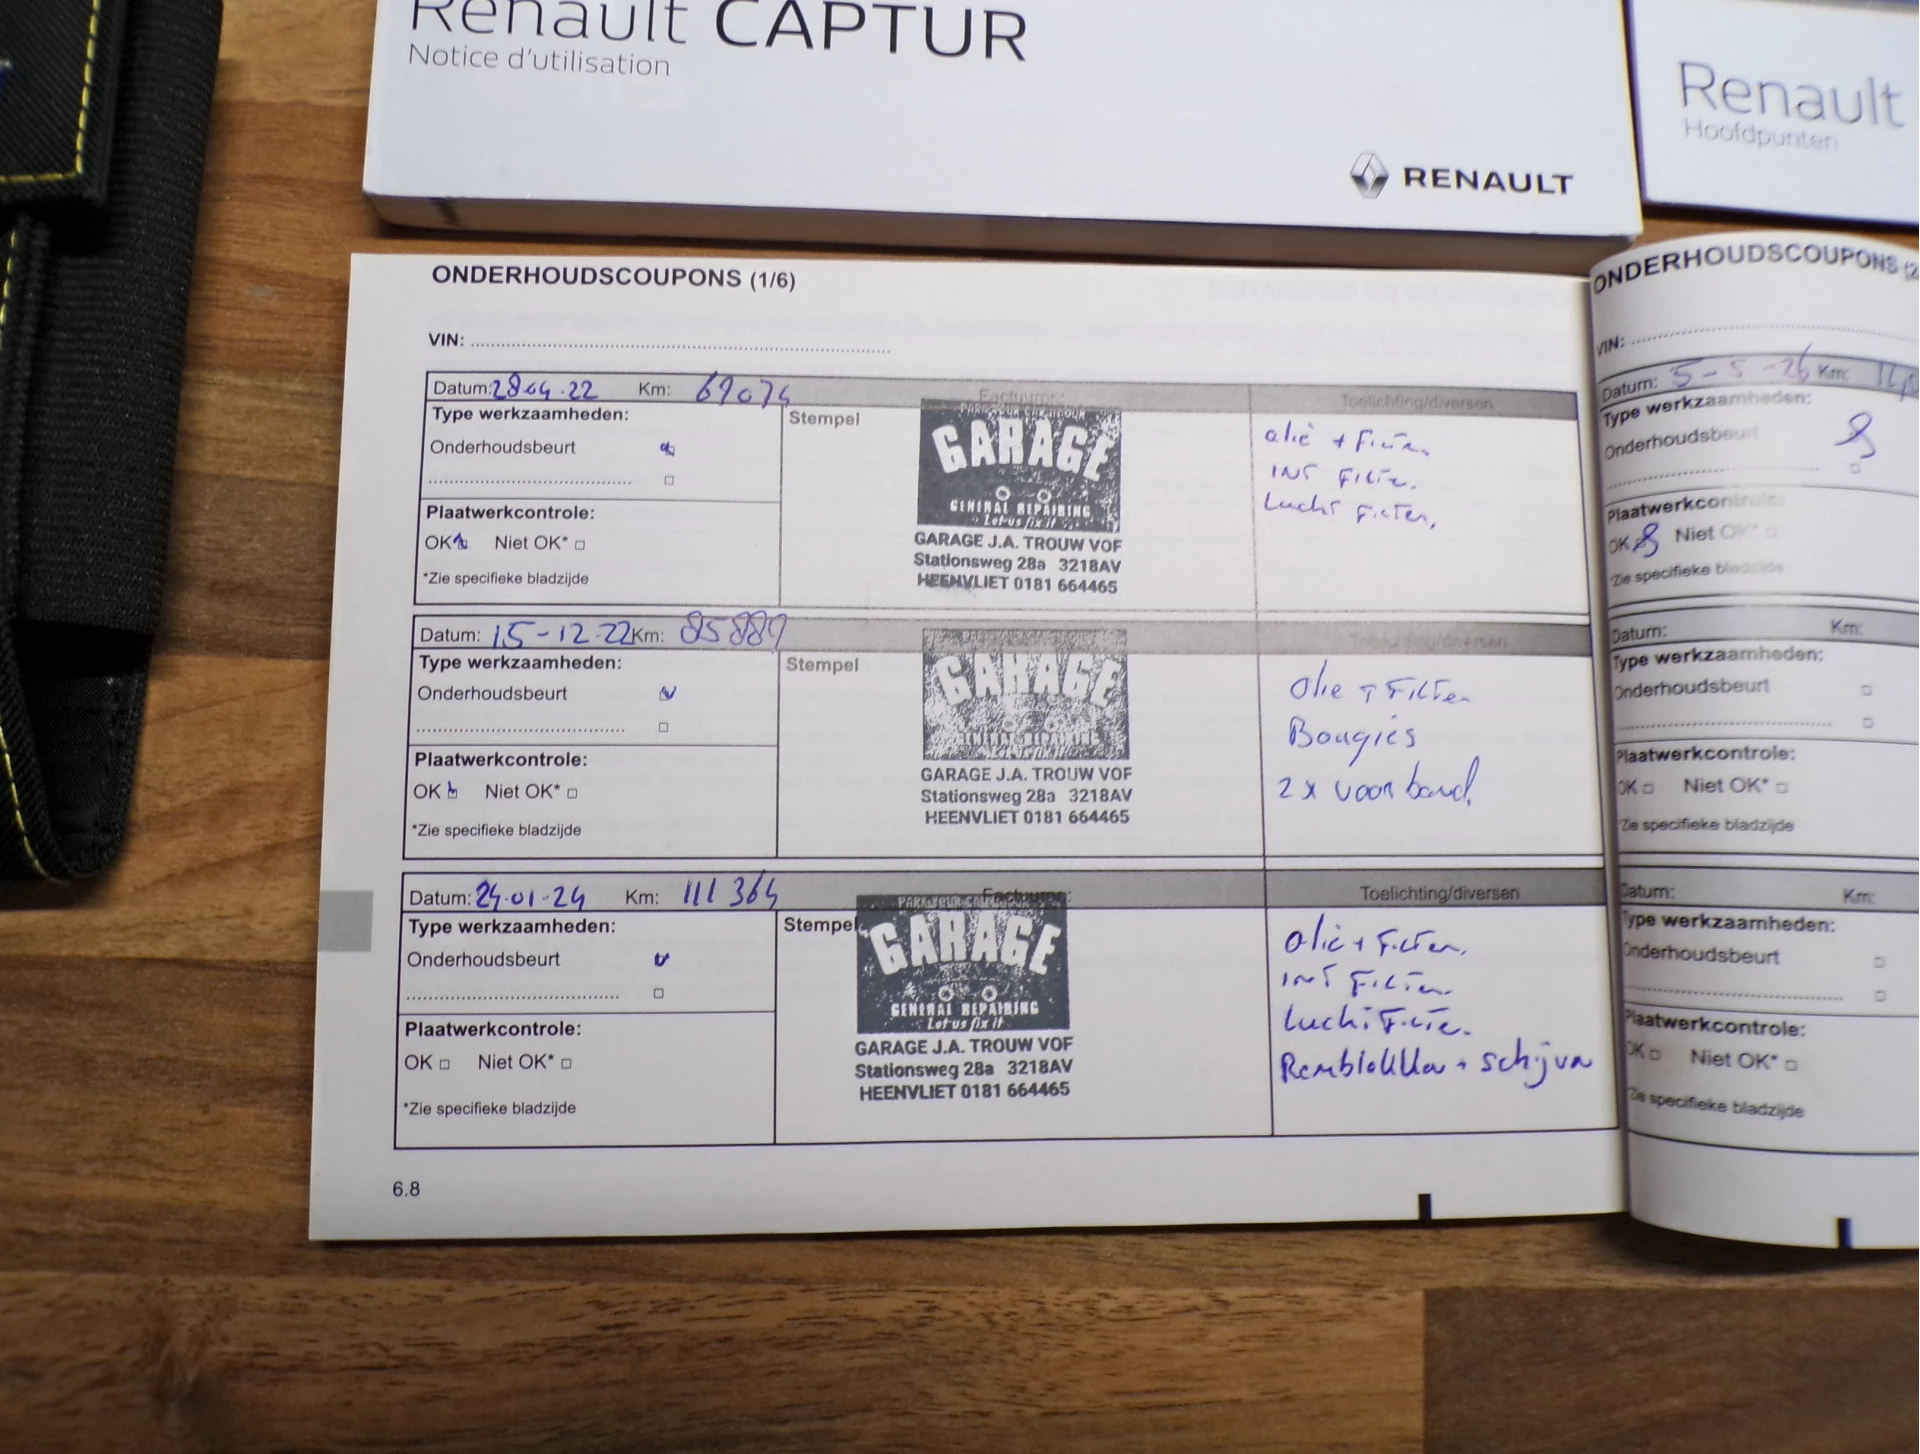 Renault CAPTUR
Notice d'utilisation
RENAULT
Renault
Hoofdpunten
ONDERHOUDSCOUPONS (1/6)
VIN:
Datum: 28 04 . 22 Km: 69074 Factuurnr.: Toelichting/diversen
Type werkzaamheden:
Stempel
Onderhoudsbeurt
Plaatwerkcontrole:
OK Niet OK*
*Zie specifieke bladzijde
GARAGE
GENERAL REPAIRING
Let us fix it
GARAGE J.A. TROUW VOF
Stationsweg 28a 3218AV
HEENVLIET 0181 664465
olie + Filter
INT Filter.
Lucht Filter.
Datum: 15-12-22 Km: 85889 Toelichting/diversen
Type werkzaamheden:
Stempel
Onderhoudsbeurt
Plaatwerkcontrole:
OK Niet OK*
*Zie specifieke bladzijde
GARAGE
GENERAL REPAIRING
GARAGE J.A. TROUW VOF
Stationsweg 28a 3218AV
HEENVLIET 0181 664465
Olie + Filter
Bougies
2 x voorband
Datum: 24-01-24 Km: 111 364 Factuurnr.: Toelichting/diversen
Type werkzaamheden:
Stempel
Onderhoudsbeurt
Plaatwerkcontrole:
OK Niet OK*
*Zie specifieke bladzijde
PARK YOUR CAR
GARAGE
GENERAL REPAIRING
Let us fix it
GARAGE J.A. TROUW VOF
Stationsweg 28a 3218AV
HEENVLIET 0181 664465
olie + Filter.
INT Filter.
Lucht Filter.
Remblokken + schijven
6.8
ONDERHOUDSCOUPONS (2
VIN:
Datum: 5-5-26 Km:
Type werkzaamheden:
Onderhoudsbeurt
Plaatwerkcontrole:
OK Niet OK*
*Zie specifieke bladzijde
Datum: Km:
Type werkzaamheden:
Onderhoudsbeurt
Plaatwerkcontrole:
OK Niet OK*
*Zie specifieke bladzijde
Datum: Km:
Type werkzaamheden:
Onderhoudsbeurt
Plaatwerkcontrole:
OK Niet OK*
*Zie specifieke bladzijde